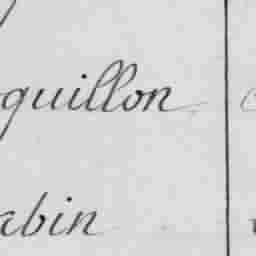 quillon
abin